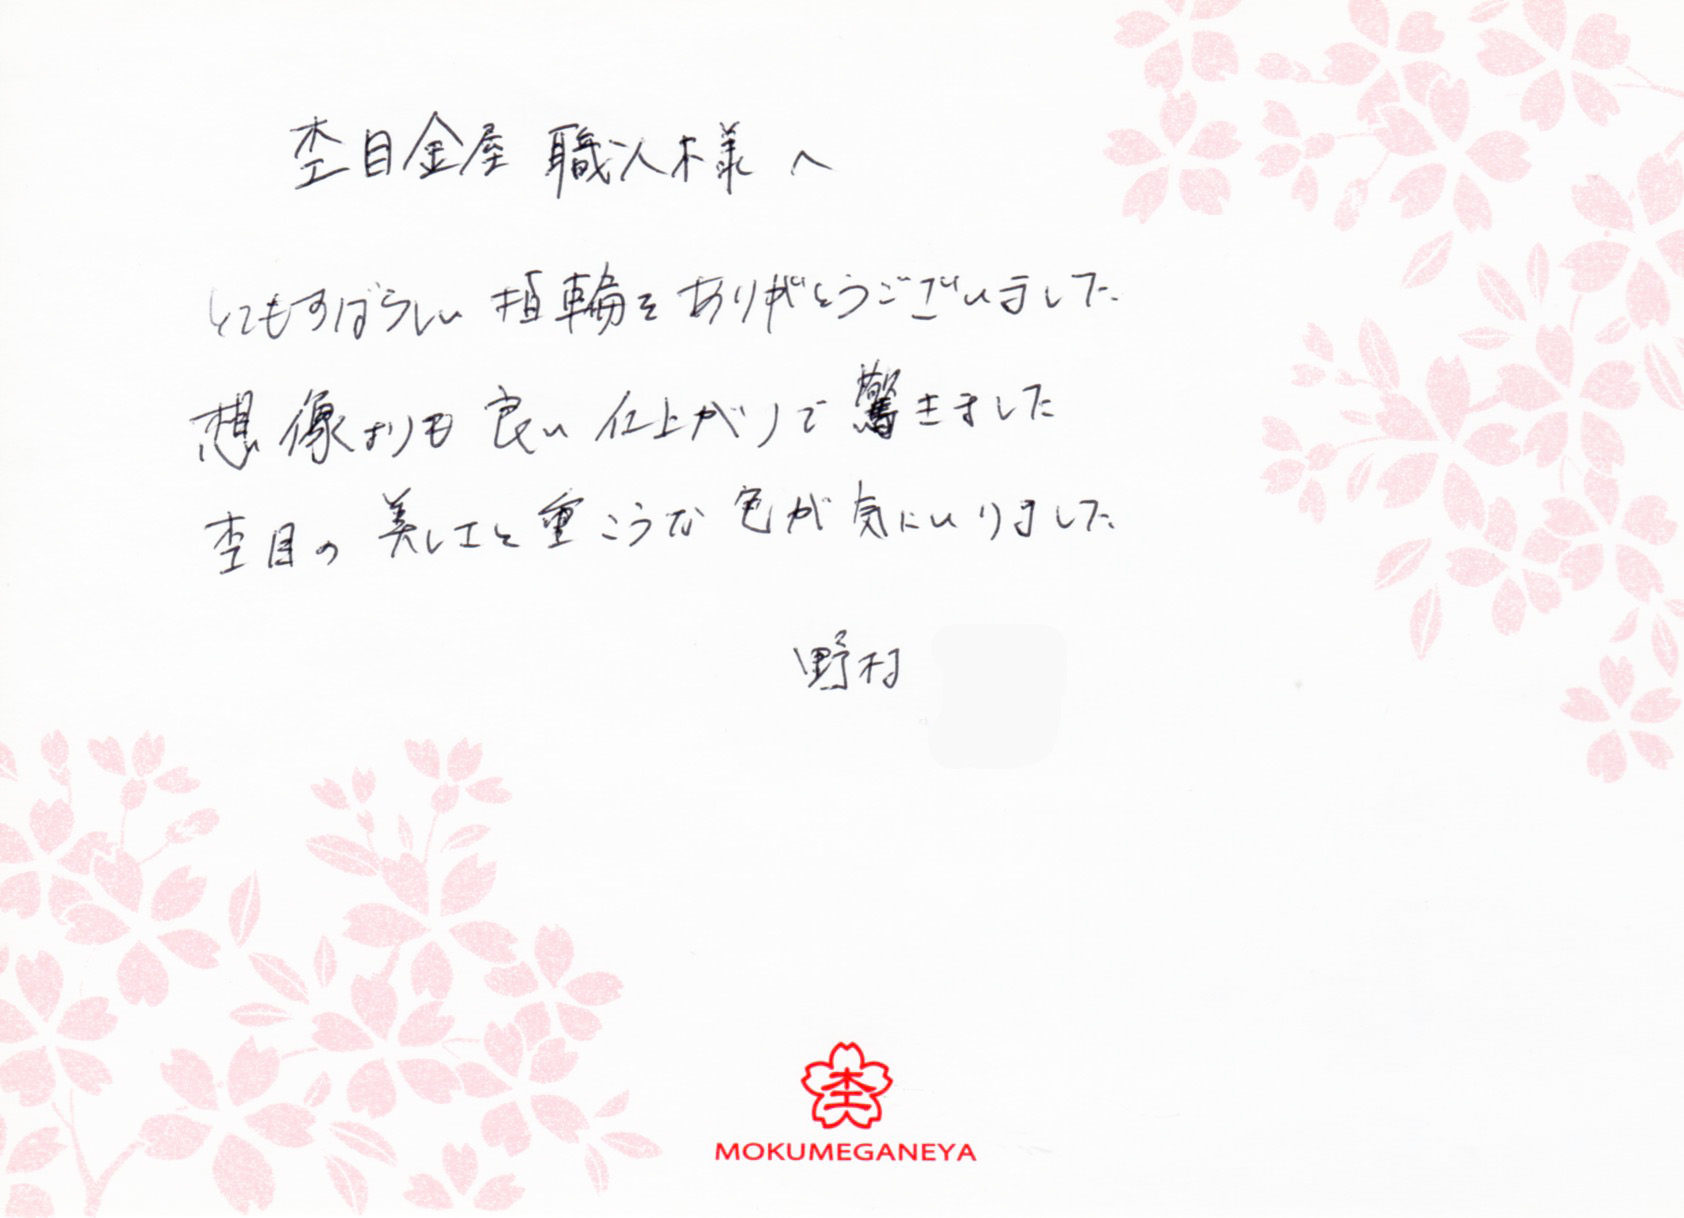 杢目金屋 職人様へ
とてもすばらしい 指輪を ありがとうございました。
想像よりも 良い 仕上がりで 驚きました
杢目の 美しさと 重こうな 色が 気にいりました。
野村
杢
MOKUMEGANEYA